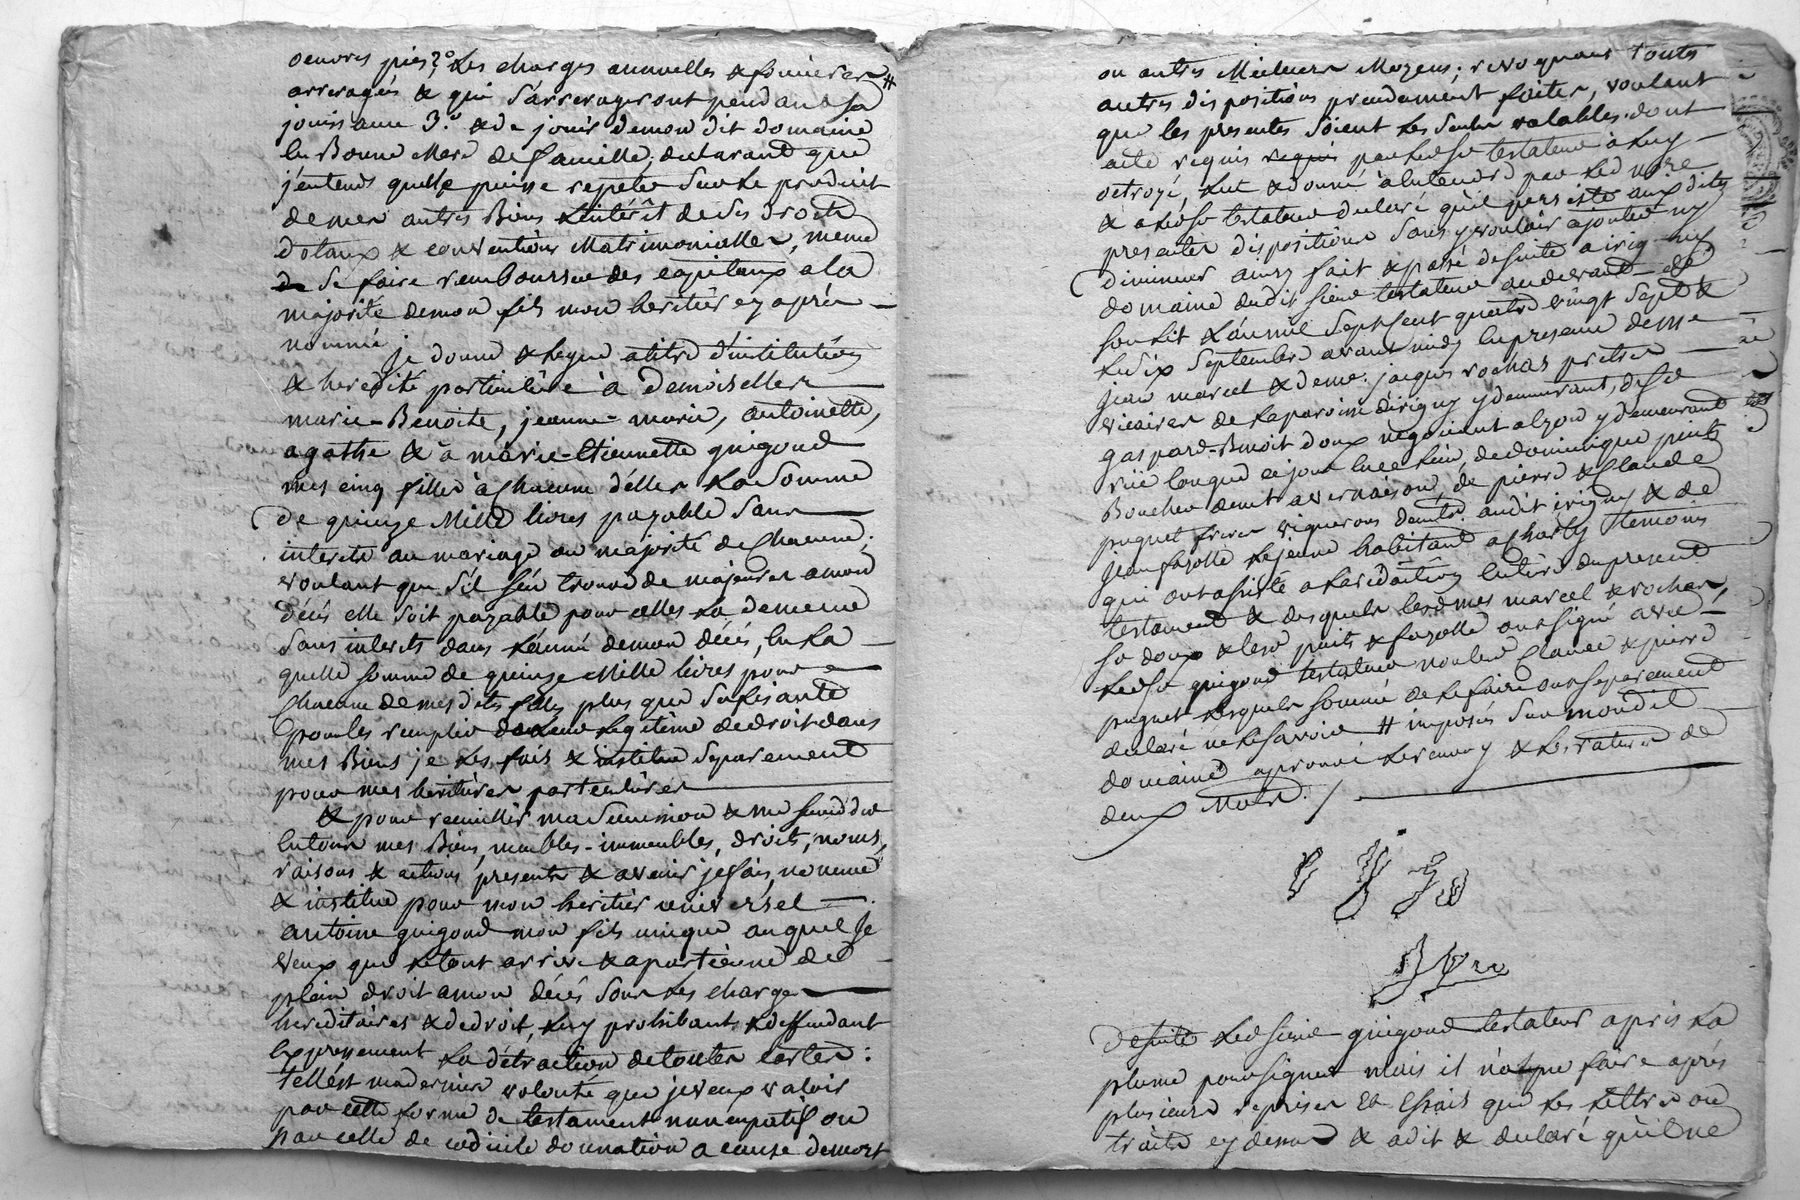 oeuvres pies; 2.° Les charges annuelles & foncieres #
arreragés & qui S'arrerageront pendant sa
jouissance 3.° & de jouir demon dit domaine
en Bonne Mere de famille, declarant que
j'entends quelle puisse repeter Sur Le produit
de mes autres Biens L'intérêt de Ses droits
dotaux & conventions Matrimonialles, meme
de Se faire rembourser des capitaux a la
majorité demon fils mon heritier cy après
nommé
Je donne & Legue atitre d'institution
& heredité particulière à Demoiselles
marie-Benoite, jeanne-marie, antoinette,
agathe & à marie-Etiennette guigoud
mes cinq filles à Chacune d'elles La Somme
De quinze Mille livres payable Sans
interets au mariage ou majorité de Chacune;
voulant que S'il S'en trouve de majeures amon
décés elle Soit payable pour celles La dememe
Sans interets dans L'année demon décés, en La
quelle Somme de quinze Mille livres pour
Chacune de mes dites filles plus que Sufisante
pour les remplir de Leur Legitime de droit dans
mes Biens je Les fais & institue Separement
pour mes heritières particulières
& pour recuillir ma Succession & me Succeder
en tous mes Biens, meubles-immeubles, droits, noms,
raisons & actions presents & avenir je fais, nomme
& institue pour mon heritier universel
antoine guigoud mon fils unique auquel Je
veux que Le tout arrive & apartienne de
plein droit amon décés Sous Les charges
hereditaires & de droit, Luy prohibant & deffendant
Expressement La détraction de toutes cartes:
Telle est maderniere volonté que je veux valoir
par cette forme de testament nuncupatif ou
par celle de codicile donnation a cause demort
ou autres Meilleurs Moyens; revoquant Touts
autres dispositions precedament faites, voulant
que les presentes Soient Les Seules valables. dont
acte requis requis par Led Sr testateur à Luy
octroyé, Lut & donné à entendre par Led nore
& a Led Sr testateur declaré qu'il persiste aux dites
presentes dispositions Sans y vouloir ajouter ny
Diminuer ainsy fait & passé de suite a irigny
domaine dudit Sieur testateur au devant de
Son Lit L'an mil Sept Cent quatre vingt Sept &
Le dix Septembre avant midy En presence de Mre
jean marcel & de me. jacques rochas prêtres
vicaires de La paroisse d'irigny y demeurant, de Sr
gaspard-Benoit Doux negociant a Lyon y demeurant
rüe longue ce jour en ce Lieu, de dominique puits
Boucher demt a vernaison, de pierre & Claude
puguet freres vignerons demts. audit irigny & de
Jean fazolle Lejeune habitant a Charly temoins
qui ont assisté a La redaction Entière du present
testament & desquels Lesd mes marcel & rochas,
Sr doux & Lesd puits & fazolle ont signé avec
Led Sr guigoud testateur non Lesd Claude & pierre
puguet Lesquels Sommé de Le faire ont separement
declaré ne Le Savoir # imposés Sur mondit
domaine aprouvé Le renvoy & Les ratures de
deux Mots. /
De suite Led Sieur guigoud testateur a pris La
plume pour signer mais il n'a que faire après
plusieurs reprises Et Essais que Les Lettres ou
traits cy dessus & a dit & declaré qu'il ne